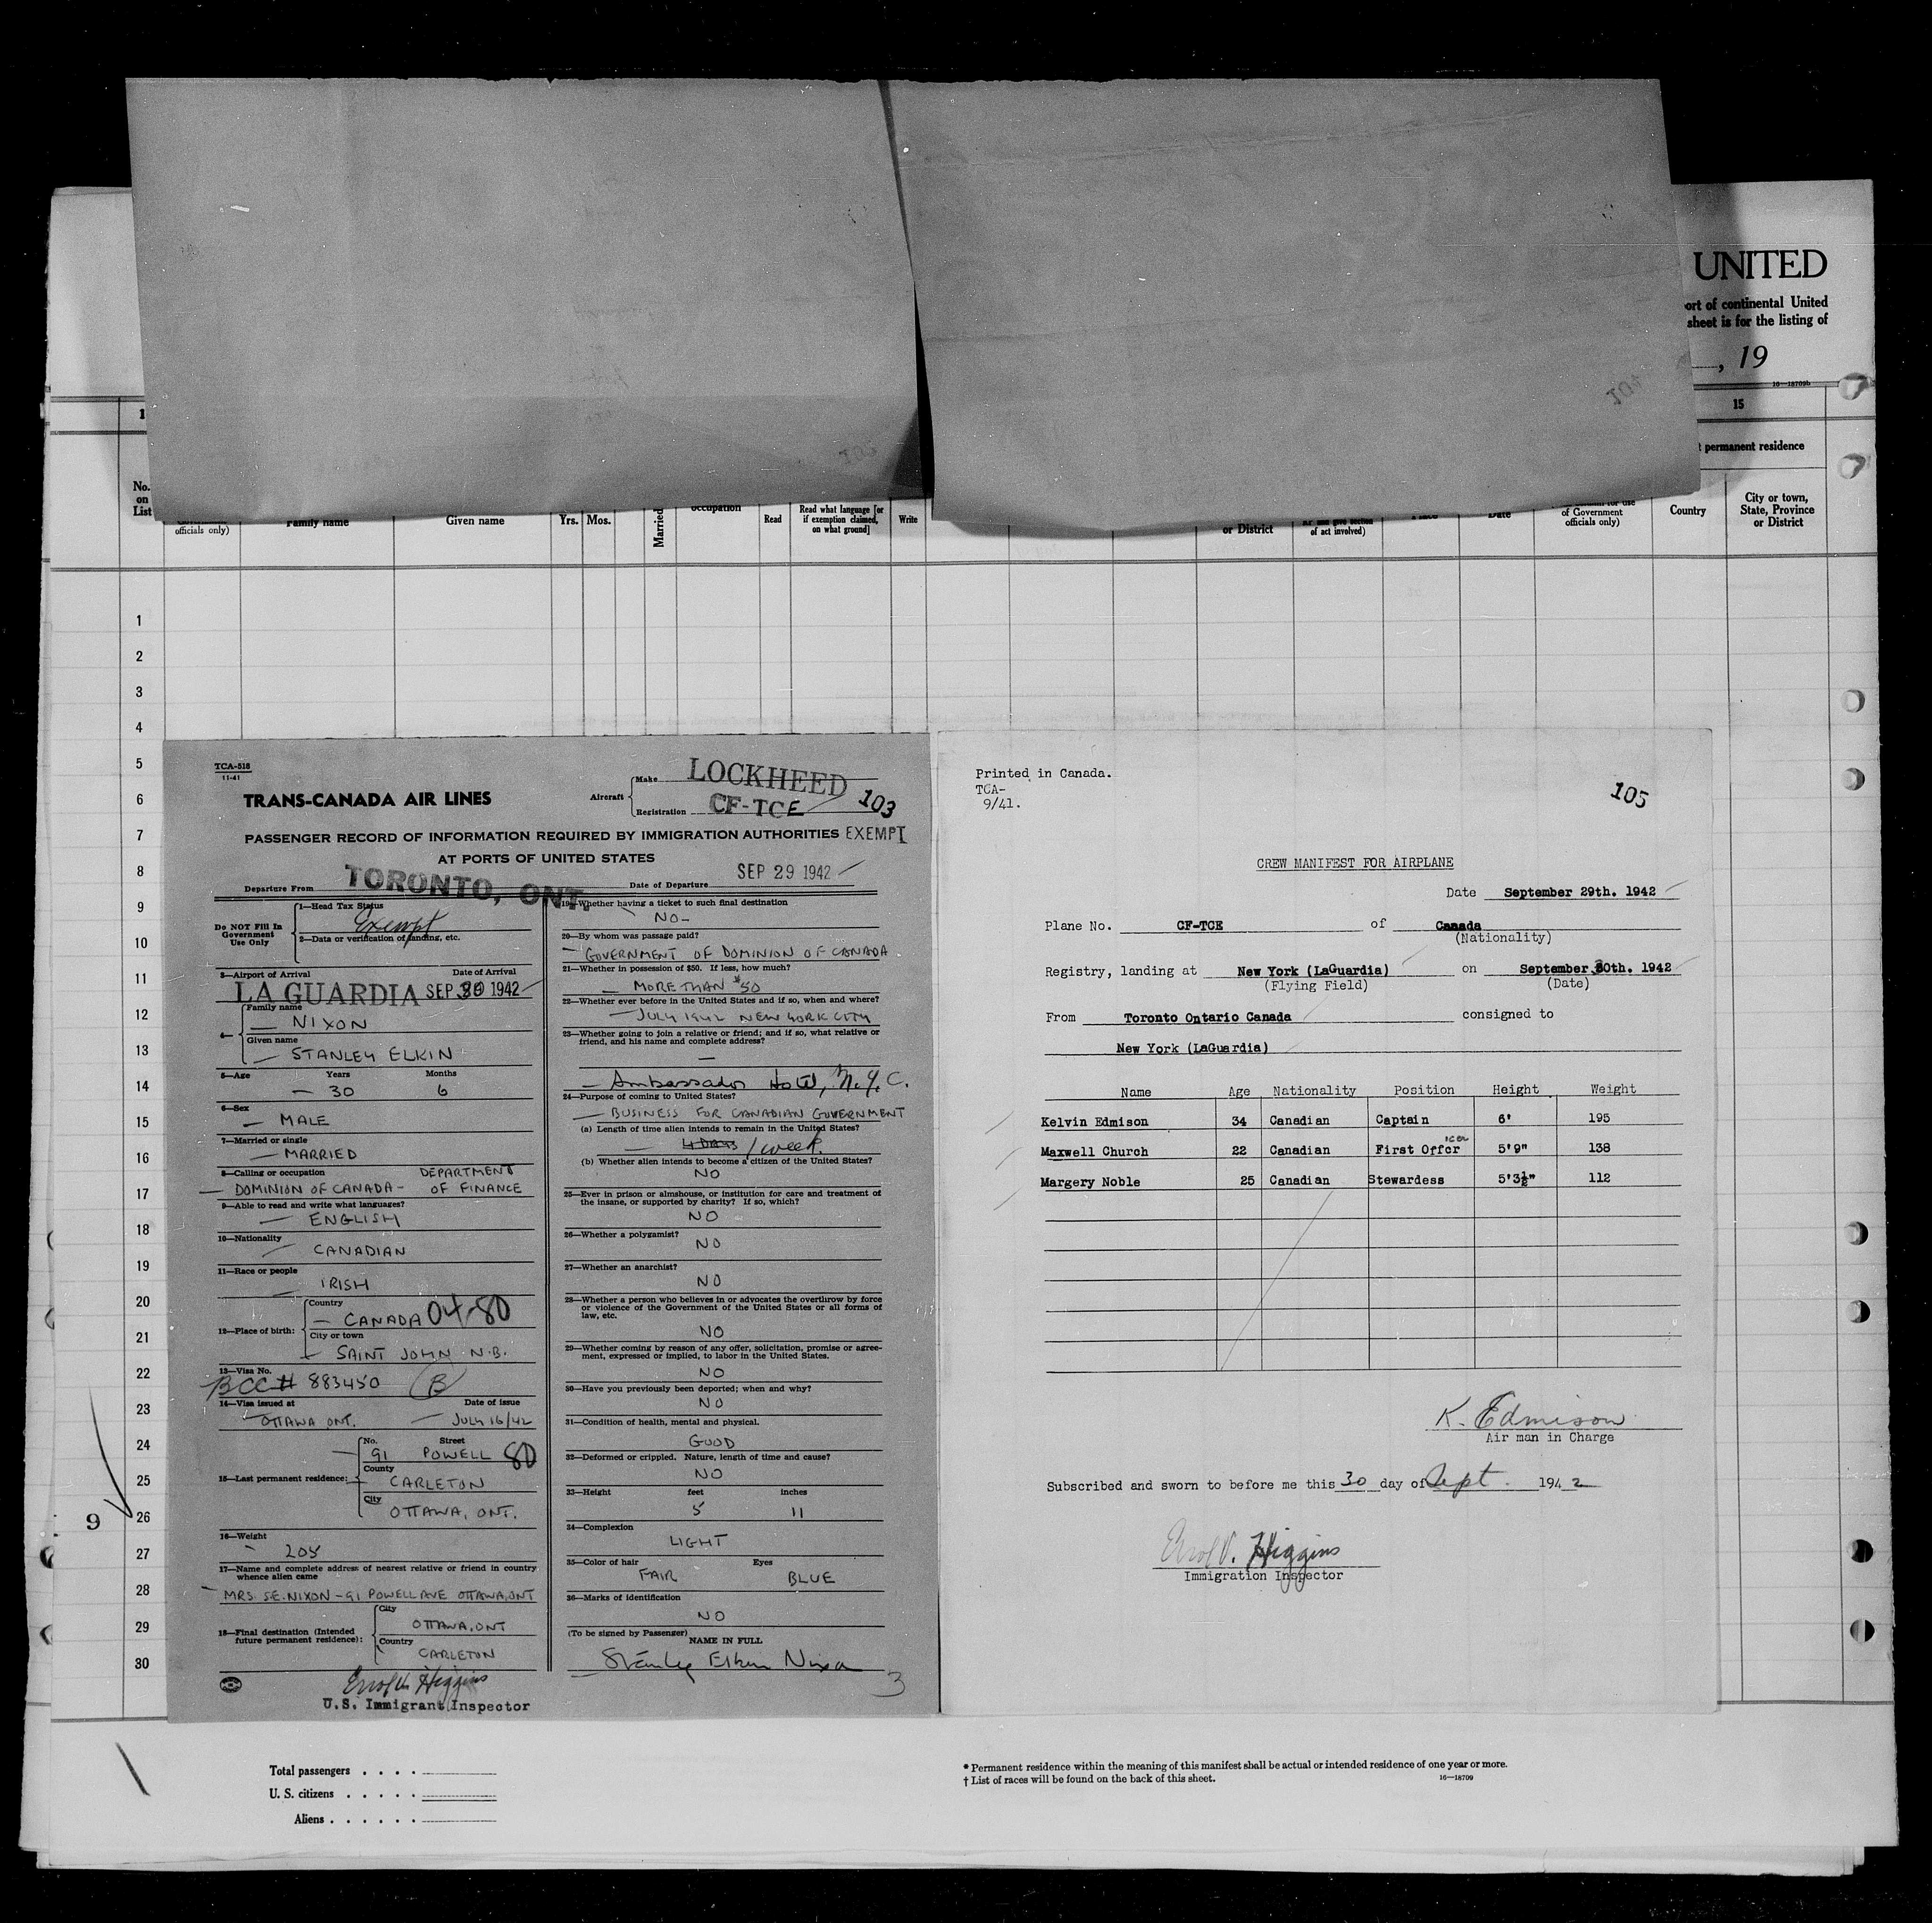 UNITED
ort of continental United
sheet is for the listing of
, 19
16—18709b
1
15
permanent residence
No. on List
officials only)
Family name
Given name
Yrs.
Mos.
Married
occupation
Read
Read what language [or if exemption claimed, on what ground]
Write
or District
of act involved)
Date
of Government officials only)
Country
City or town, State, Province or District
1
2
3
4
5
6
7
8
9
10
11
12
13
14
15
16
17
18
19
20
21
22
23
24
25
9 26
27
28
29
30
TCA-518
11-41
TRANS-CANADA AIR LINES
Aircraft
Make LOCKHEED
Registration CF-TCE
103
PASSENGER RECORD OF INFORMATION REQUIRED BY IMMIGRATION AUTHORITIES EXEMPT
AT PORTS OF UNITED STATES
Departure From TORONTO, ONT.
Date of Departure SEP 29 1942
Do NOT Fill In Government Use Only
1—Head Tax Status
Exempt
2—Data or verification of landing, etc.
3—Airport of Arrival
Date of Arrival
LA GUARDIA SEP 30 1942
4—
Family name
NIXON
Given name
STANLEY ELKIN
5—Age Years Months
30 6
6—Sex
MALE
7—Married or single
MARRIED
8—Calling or occupation
DEPARTMENT
DOMINION OF CANADA - OF FINANCE
9—Able to read and write what languages?
ENGLISH
10—Nationality
CANADIAN
11—Race or people
IRISH
12—Place of birth:
Country
CANADA 04-80
City or town
SAINT JOHN N.B.
13—Visa No.
BCC # 883450 B
14—Visa issued at
Date of issue
OTTAWA ONT. JULY 16/42
15—Last permanent residence:
No. Street
91 POWELL 80
County
CARLETON
City
OTTAWA, ONT.
16—Weight
205
17—Name and complete address of nearest relative or friend in country whence alien came
MRS. S.E. NIXON - 91 POWELL AVE OTTAWA, ONT
18—Final destination (Intended future permanent residence):
City
OTTAWA, ONT
Country
CARLETON
Errol V. Higgins
U.S. Immigrant Inspector
19—Whether having a ticket to such final destination
NO-
20—By whom was passage paid?
GOVERNMENT OF DOMINION OF CANADA
21—Whether in possession of $50. If less, how much?
MORE THAN $50
22—Whether ever before in the United States and if so, when and where?
JULY 1942 NEW YORK CITY
23—Whether going to join a relative or friend; and if so, what relative or friend, and his name and complete address?
—
Ambassador Hotel, N.Y.C.
24—Purpose of coming to United States?
BUSINESS FOR CANADIAN GOVERNMENT
(a) Length of time alien intends to remain in the United States?
4 DAYS 1 week
(b) Whether alien intends to become a citizen of the United States?
NO
25—Ever in prison or almshouse, or institution for care and treatment of the insane, or supported by charity? If so, which?
NO
26—Whether a polygamist?
NO
27—Whether an anarchist?
NO
28—Whether a person who believes in or advocates the overthrow by force or violence of the Government of the United States or all forms of law, etc.
NO
29—Whether coming by reason of any offer, solicitation, promise or agreement, expressed or implied, to labor in the United States.
NO
30—Have you previously been deported; when and why?
NO
31—Condition of health, mental and physical.
GOOD
32—Deformed or crippled. Nature, length of time and cause?
NO
33—Height feet inches
5 11
34—Complexion
LIGHT
35—Color of hair Eyes
FAIR BLUE
36—Marks of identification
NO
(To be signed by Passenger)
NAME IN FULL
Stanley Elkin Nixon
3
Printed in Canada.
TCA-
9/41.
105
CREW MANIFEST FOR AIRPLANE
Date September 29th. 1942
Plane No. CF-TCE of Canada
(Nationality)
Registry, landing at New York (LaGuardia) on September 30th. 1942
(Flying Field) (Date)
From Toronto Ontario Canada consigned to
New York (LaGuardia)
Name Age Nationality Position Height Weight
Kelvin Edmison 34 Canadian Captain 6' 195
Maxwell Church 22 Canadian First Offcr icer 5'9" 138
Margery Noble 25 Canadian Stewardess 5'3½" 112
K. Edmison
Air man in Charge
Subscribed and sworn to before me this 30 day of Sept. 1942
Errol V. Higgins
Immigration Inspector
Total passengers . . . .
U. S. citizens . . . . .
Aliens . . . . . .
* Permanent residence within the meaning of this manifest shall be actual or intended residence of one year or more.
† List of races will be found on the back of this sheet.
16—18709